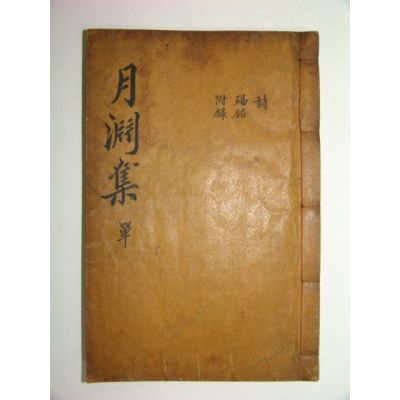 月淵集
單
詩
碣銘
附錄